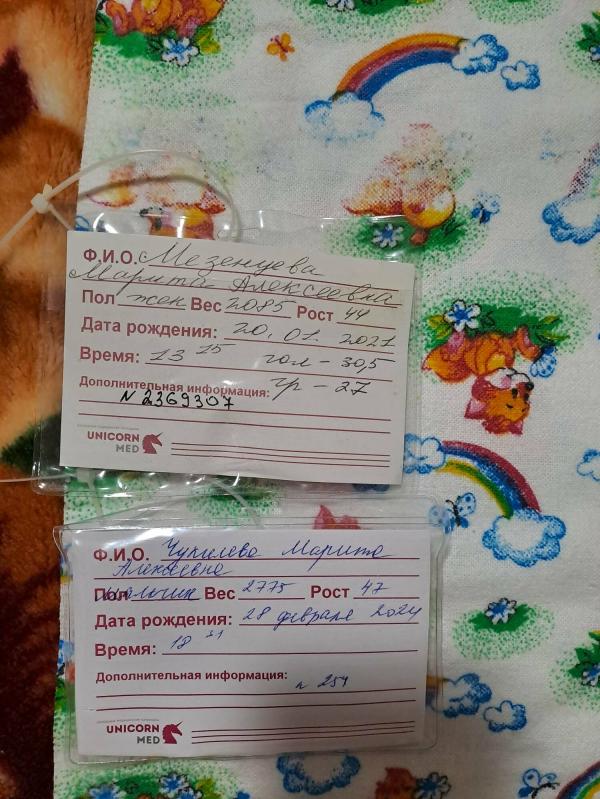 Ф.И.О. Мезенцева
Марита Алексеевна
Пол жен Вес 2085 Рост 44
Дата рождения: 20.01.2021
Время: 13 15 гол - 30,5
Дополнительная информация: гр - 27
N 2369307
UNICORN
MED
Ф.И.О. Чукилева Марита
Алексеевна
Пол мальчик Вес 2775 Рост 47
Дата рождения: 28 февраля 2024
Время: 18 31
Дополнительная информация:
n 254
UNICORN
MED